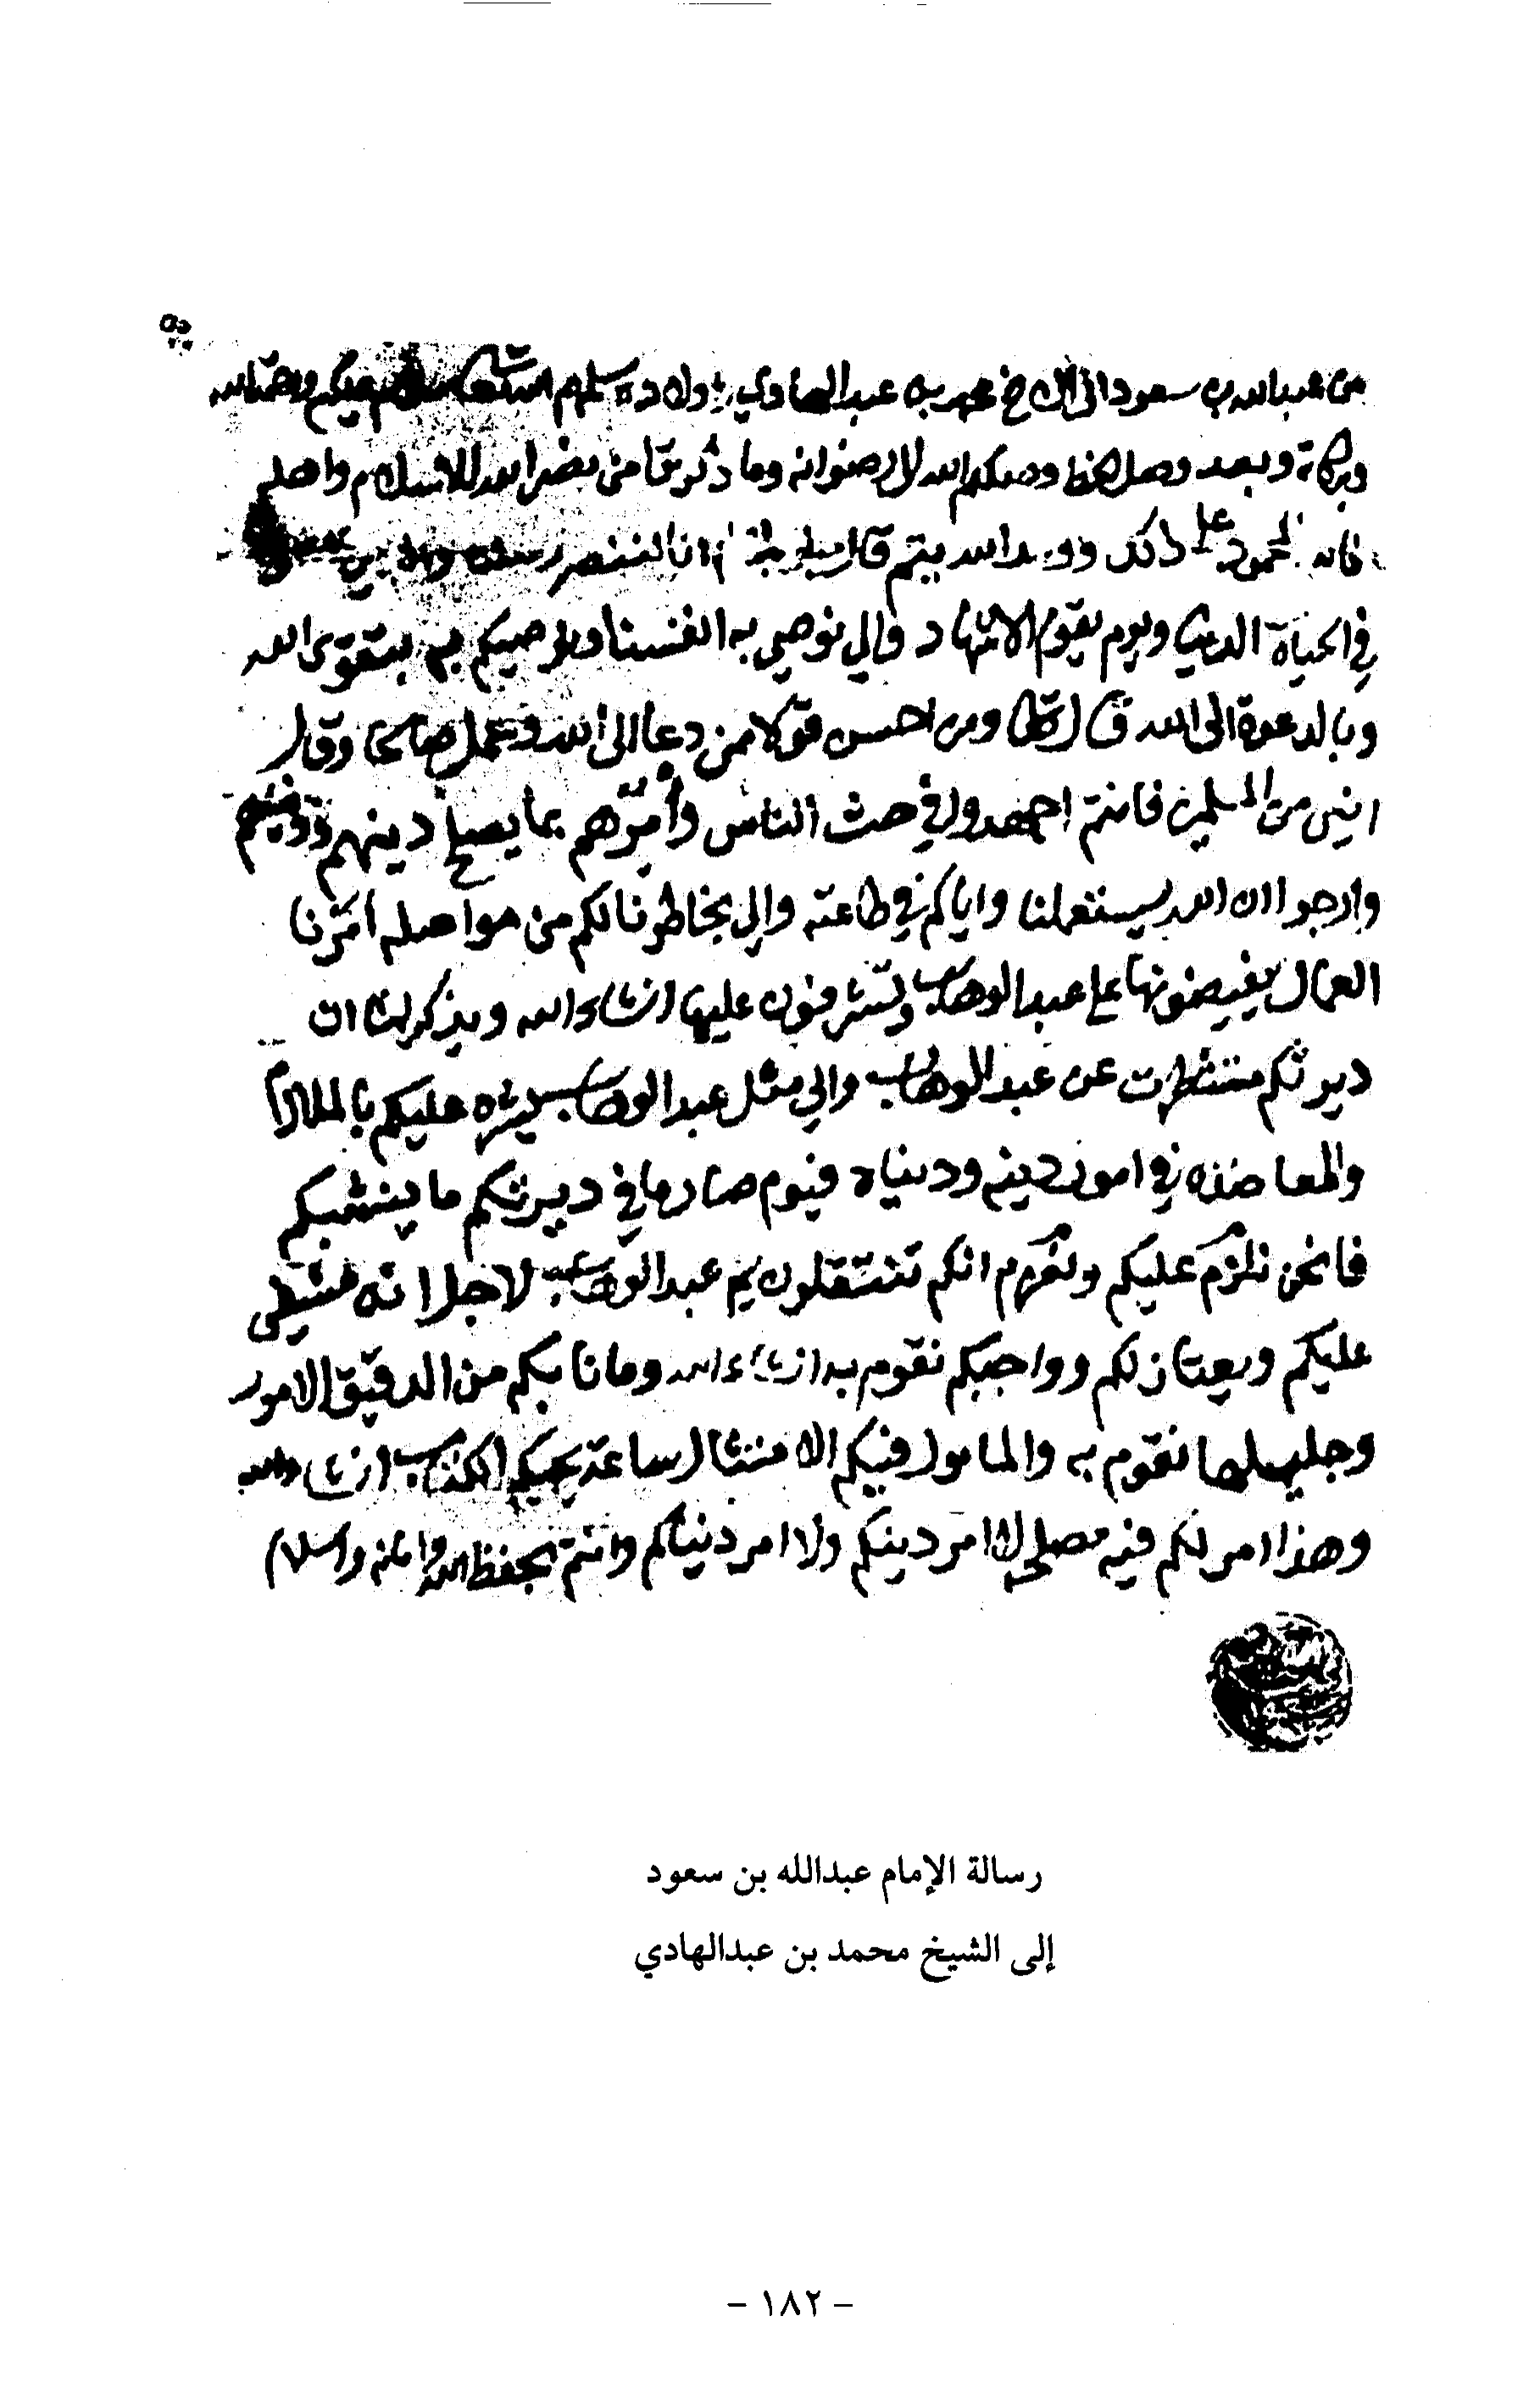 من عبدالله بن سعود الى الاخ محمد بن عبدالهادي واولاده سلمهم الله تعالى سلام عليكم ورحمة الله
وبركاته وبعد وصل الخط وصلكم الله لا رضوانه وما ذكرتو من نصر الله للاسلام واهله
فالله المحمود على ذلك الله يتم قال انا لننصر رسلنا والذين
في الحياة الدنيا ويوم يقوم الاشهاد والي نوصي به انفسنا ونوصيكم به بتقوى الله
وبالدعوة الى الله قال تعالى ومن احسن قولا ممن دعا الى الله وعمل صالحا وقال
انني من المسلمين فانتم اجهدوا في حث الناس وأمرهم بما يصلح دينهم
وارجوا ان الله يستعملنا واياكم في طاعته والي بخاطرنا لكم من مواصله أمرنا
العمال يفيضونها على عبدالوهاب وتشرفون عليها انشاء الله ويذكر لنا ان
ديرتكم عن عبدالوهاب والي مثل عبدالوهاب عليكم بالملازم
والمعاضده في امور دينه ودنياه فيوم صار ما في ديرتكم ما ينشبكم
فانحن نلزم عليكم ونعزم انكم تنتقلون يم عبدالوهاب لاجل انه
عليكم ويعتاز لكم وواجبكم نقوم به انشاء الله وما نابكم من الدقيق الامور
وجليلها نقوم به والمامول فيكم الامتثال ساعة يجيكم الكتاب انشاء الله
وهذا امر لكم فيه مصلحة لا امر دينكم ولا امر دنياكم وانتم بحفظ الله وامانه والسلام
رسالة الإمام عبدالله بن سعود
إلى الشيخ محمد بن عبدالهادي
- ١٨٢ -